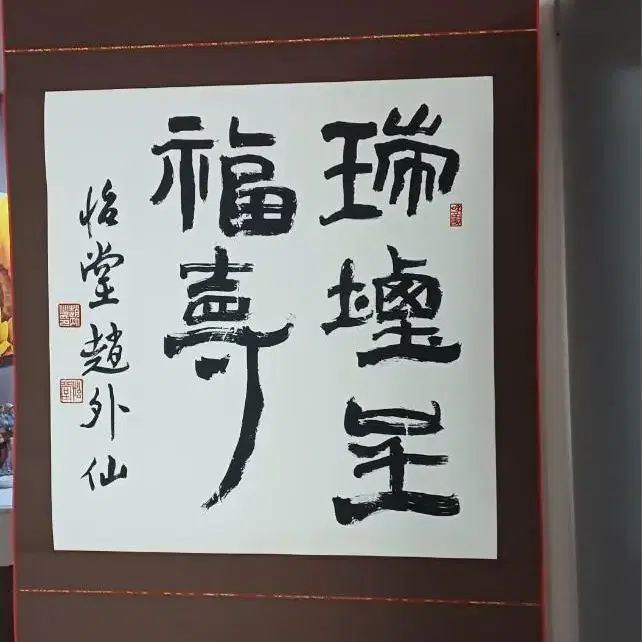 瑞壇呈
福壽
怡堂趙外仙